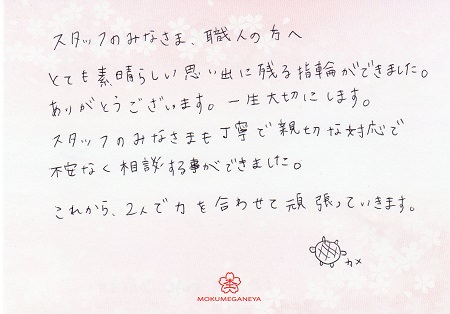 スタッフのみなさま、職人の方へ
とても素晴らしい思い出に残る指輪ができました。
ありがとうございます。一生大切にします。
スタッフのみなさまも丁寧で親切な対応で
不安なく相談する事ができました。
これから、2人で力を合わせて頑張っていきます。
カメ
MOKUMEGANEYA